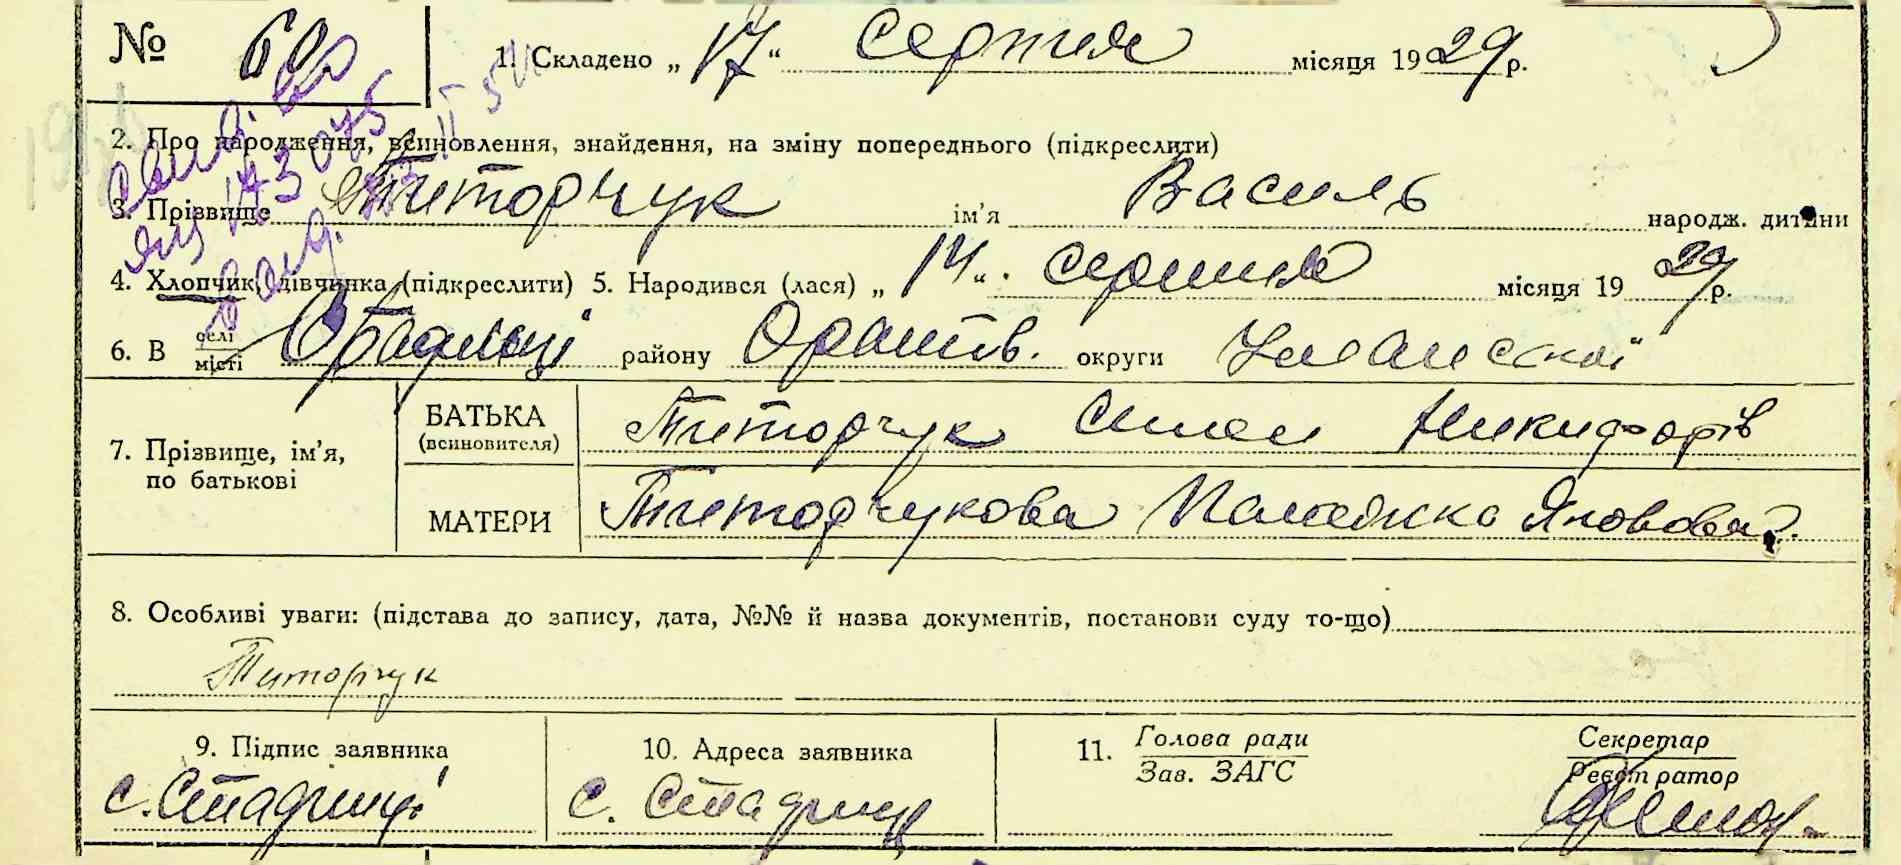 № 60
1. Складено „17“ серпня місяця 1929 р.
2. Про народження, всиновлення, знайдення, на зміну попереднього (підкреслити)
3. Прізвище Титорчук ім'я Василь народж. дитини
4. Хлопчик, дівчинка (підкреслити) 5. Народився (лася) „14“ серпня місяця 1929 р.
6. В селі місті районy Оратів. округи Уманської
7. Прізвище, ім'я, по батькові
БАТЬКА (всиновителя) Титорчук Никифорів
МАТЕРИ Титорчукова Яковова
8. Особливі уваги: (підстава до запису, дата, №№ й назва документів, постанови суду то-що)
Титорчук
9. Підпис заявника 10. Адреса заявника 11. Голова ради Секретар
Зав. ЗАГС Реєстратор
с. Стадниці с. Стадниці